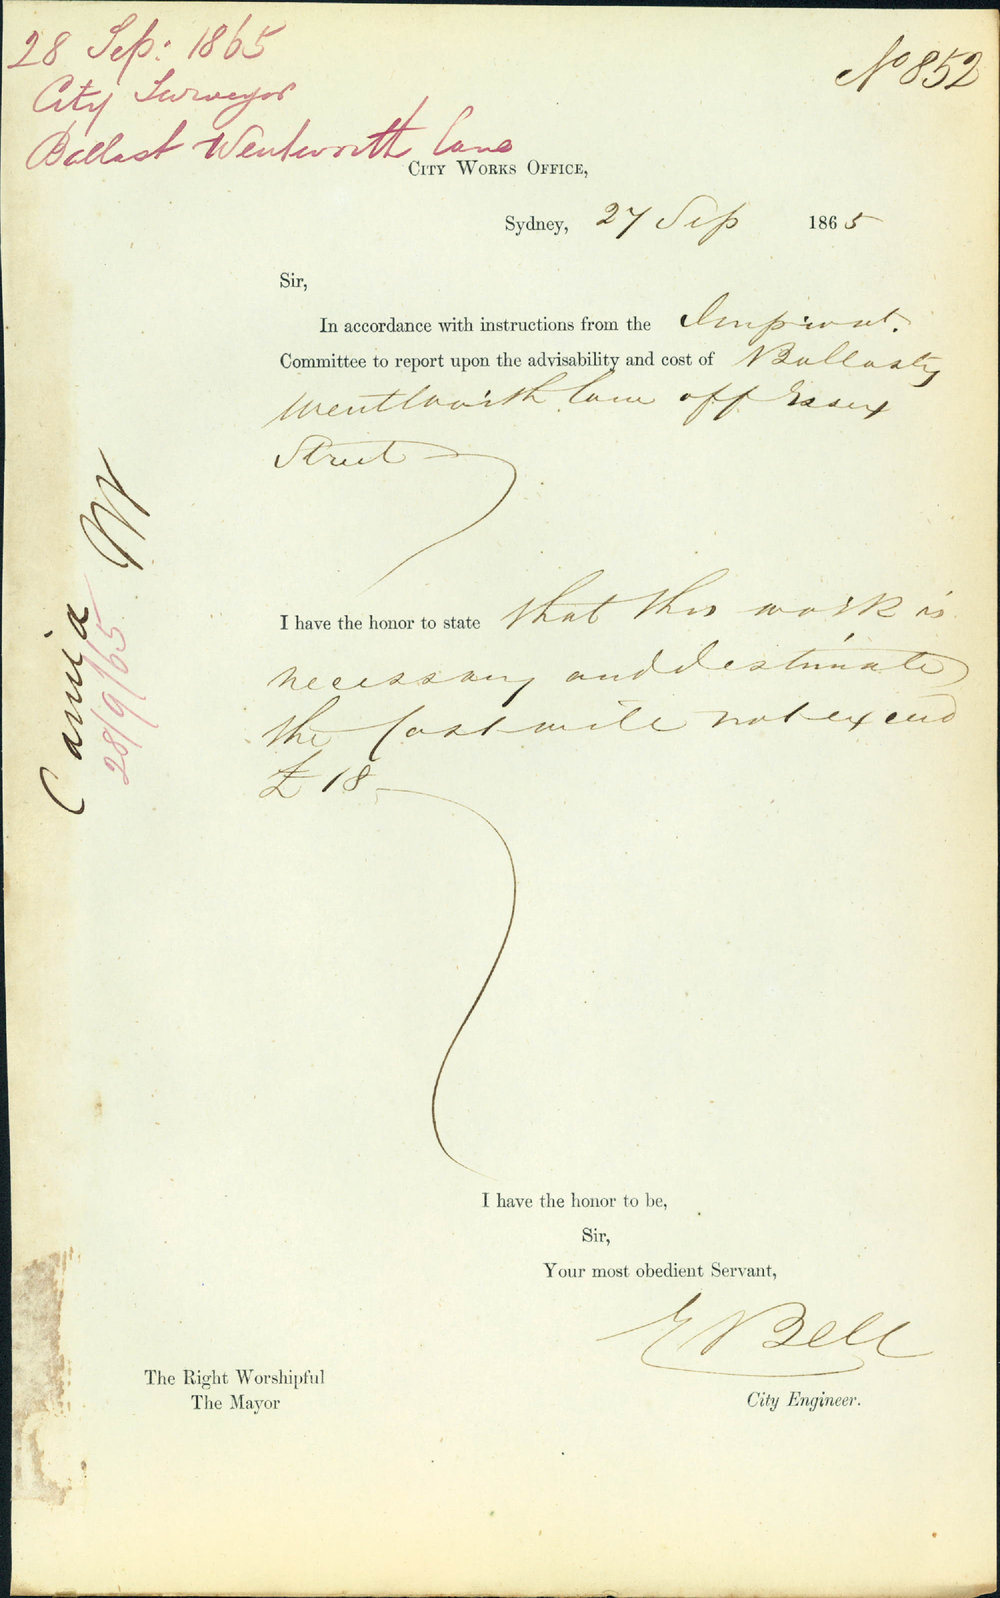 28 Sep: 1865
City Surveyor
Ballast Wentworth Lane
No 852
CITY WORKS OFFICE,
Sydney, 27 Sep 1865
Sir,
In accordance with instructions from the Improvnt.
Committee to report upon the advisability and cost of Ballastg
Wentworth Lane off Essex
Street
I have the honor to state that this work is
necessary and I estimate
the Cost will not exceed
£ 18
28/9/65
I have the honor to be,
Sir,
Your most obedient Servant,
E Bell
City Engineer.
The Right Worshipful
The Mayor